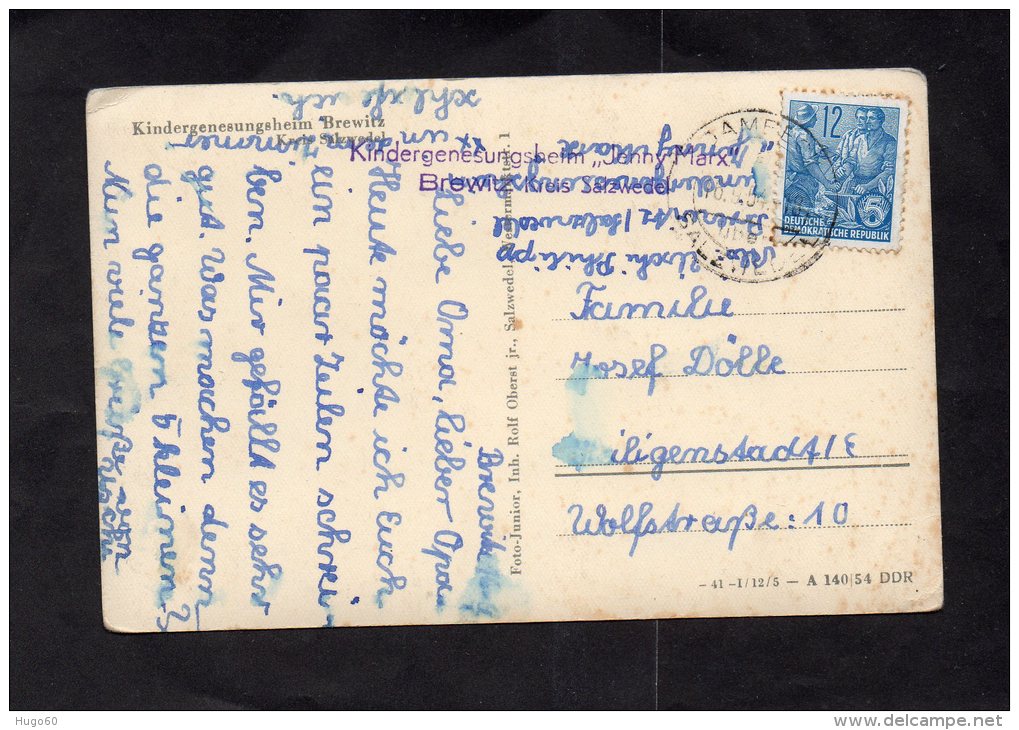 Kindergenesungsheim Brewitz
Kreis Salzwedel
Kindergenesungsheim „Jenny Marx“
Brewitz Kreis Salzwedel
Liebe Oma, lieber Opa
Heute möchte ich Euch
ein paar Zeilen schrei-
ben. Mir gefällt es sehr
gut. Was machen denn
die ganzen 5 kleinen?
Nun viele Grüße
Foto-Junior, Inh. Rolf Oberst jr., Salzwedel,
12
DEUTSCHE
DEMOKRATISCHE REPUBLIK
5
SALZWEDEL
„Jenny Marx“
Brewitz/Salzwedel
Uschi Philipp
Familie
Josef Dölle
iligenstadt/E
Wolfstraße: 10
- 41 -I/12/5 — A 140/54 DDR
Hugo60
delcampe.net